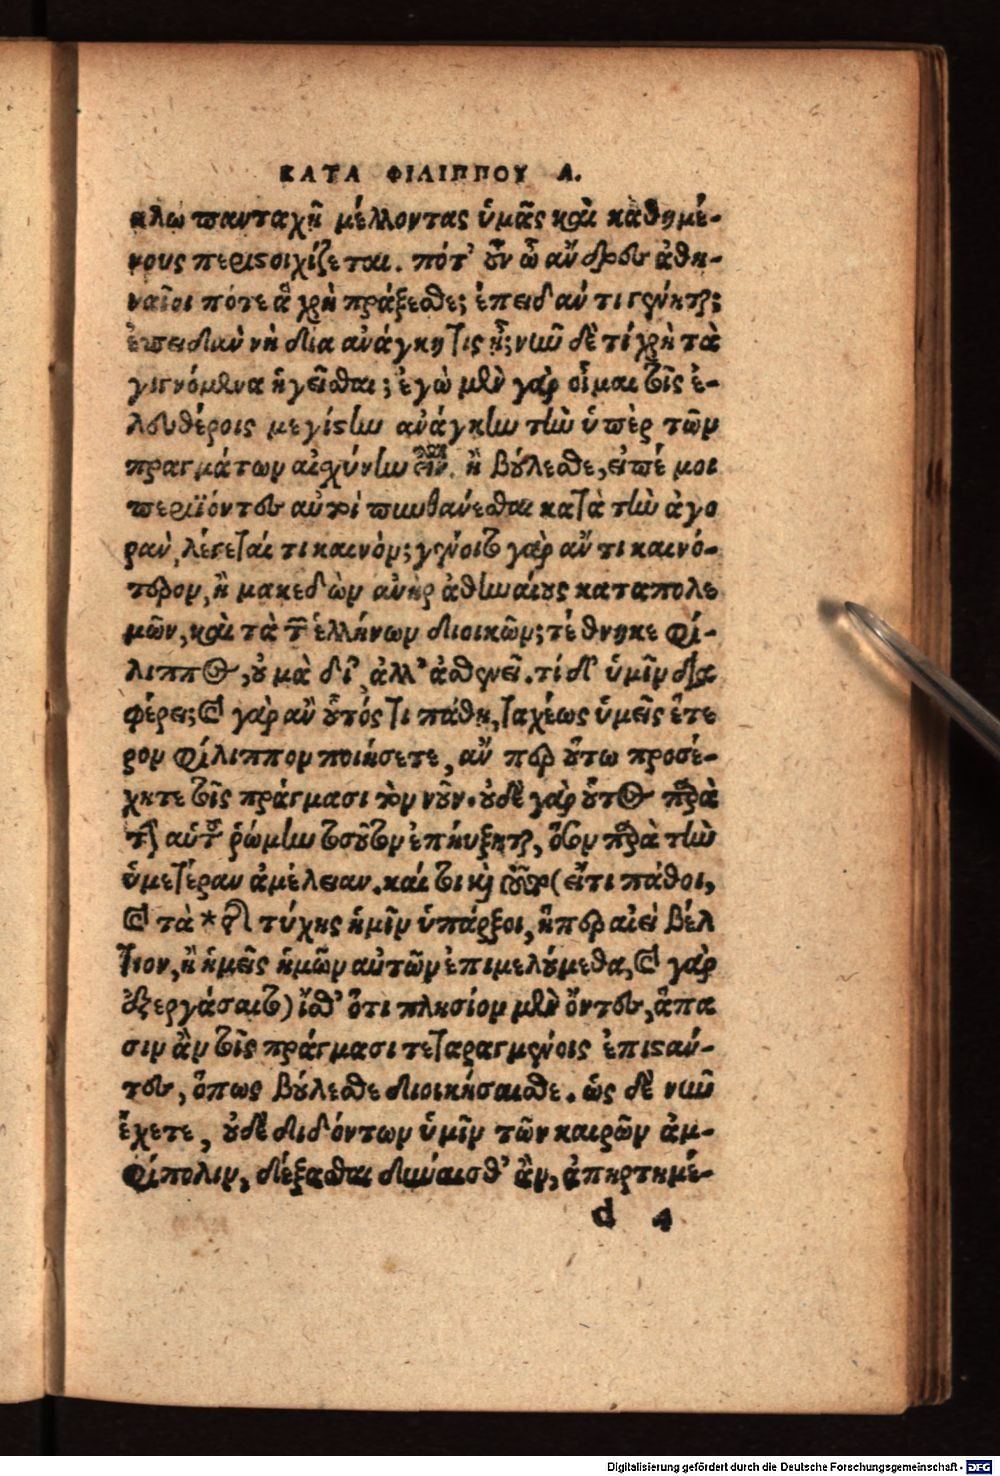 ΚΑΤΑ ΦΙΛΙΠΠΟΥ Α.
κλῳ πανταχῆ μέλλοντας ὑμᾶς καὶ καθημέ-
νους περιστοιχίζεται. πότ' οὖν ὦ ἄνδρες ἀθη-
ναῖοι πότε ἃ χρὴ πράξετε; ἐπειδάν τι γένηται;
ἐπειδὰν νὴ δία ἀνάγκη τις ᾖ; νῦν δὲ τί χρὴ τὰ
γιγνόμενα ἡγεῖσθαι; ἐγὼ μὲν γὰρ οἶμαι τοῖς ἐ-
λευθέροις μεγίστην ἀνάγκην τὴν ὑπὲρ τῶν
πραγμάτων αἰσχύνην εἶναι. ἢ βούλεσθε, εἰπέ μοι
περιϊόντες αὐτοὶ πυνθάνεσθαι κατὰ τὴν ἀγο
ρὰν, λέγεταί τι καινὸν; γένοιτο γὰρ ἄν τι καινό-
τερον, ἢ μακεδὼν ἀνὴρ ἀθηναίους καταπολε
μῶν, καὶ τὰ τῶν ἑλλήνων διοικῶν; τέθνηκε φί-
λιππος, οὐ μὰ δί', ἀλλ' ἀσθενεῖ. τί δ' ὑμῖν δια
φέρει; καὶ γὰρ ἂν οὗτός τι πάθῃ, ταχέως ὑμεῖς ἕτε
ρον φίλιππον ποιήσετε, ἄν περ οὕτω προσέ-
χητε τοῖς πράγμασι τὸν νοῦν. οὐδὲ γὰρ οὗτος παρὰ
τὴν αὑτοῦ ῥώμην τοσοῦτον ἐπηύξηται, ὅσον παρὰ τὴν
ὑμετέραν ἀμέλειαν. καί τοι καὶ τοῦτο (εἴ τι πάθοι,
καὶ τὰ * τῆς τύχης ἡμῖν ὑπάρξοι, ἥπερ αἰεὶ βέλ
τιον, ἢ ἡμεῖς ἡμῶν αὐτῶν ἐπιμελούμεθα, καὶ γὰρ
ἐξεργάσαιτο) ἴσθ' ὅτι πλησίον μὲν ὄντες, ἅπα
σιν ἂν τοῖς πράγμασι τεταραγμένοις ἐπιστάν-
τες, ὅπως βούλεσθε διοικήσαισθε. ὡς δὲ νῦν
ἔχετε, οὐδὲ διδόντων ὑμῖν τῶν καιρῶν ἀμ-
φίπολιν, δέξασθαι δύναισθ' ἂν, ἀπηρτημέ-
d 4
Digitalisierung gefördert durch die Deutsche Forschungsgemeinschaft - DFG